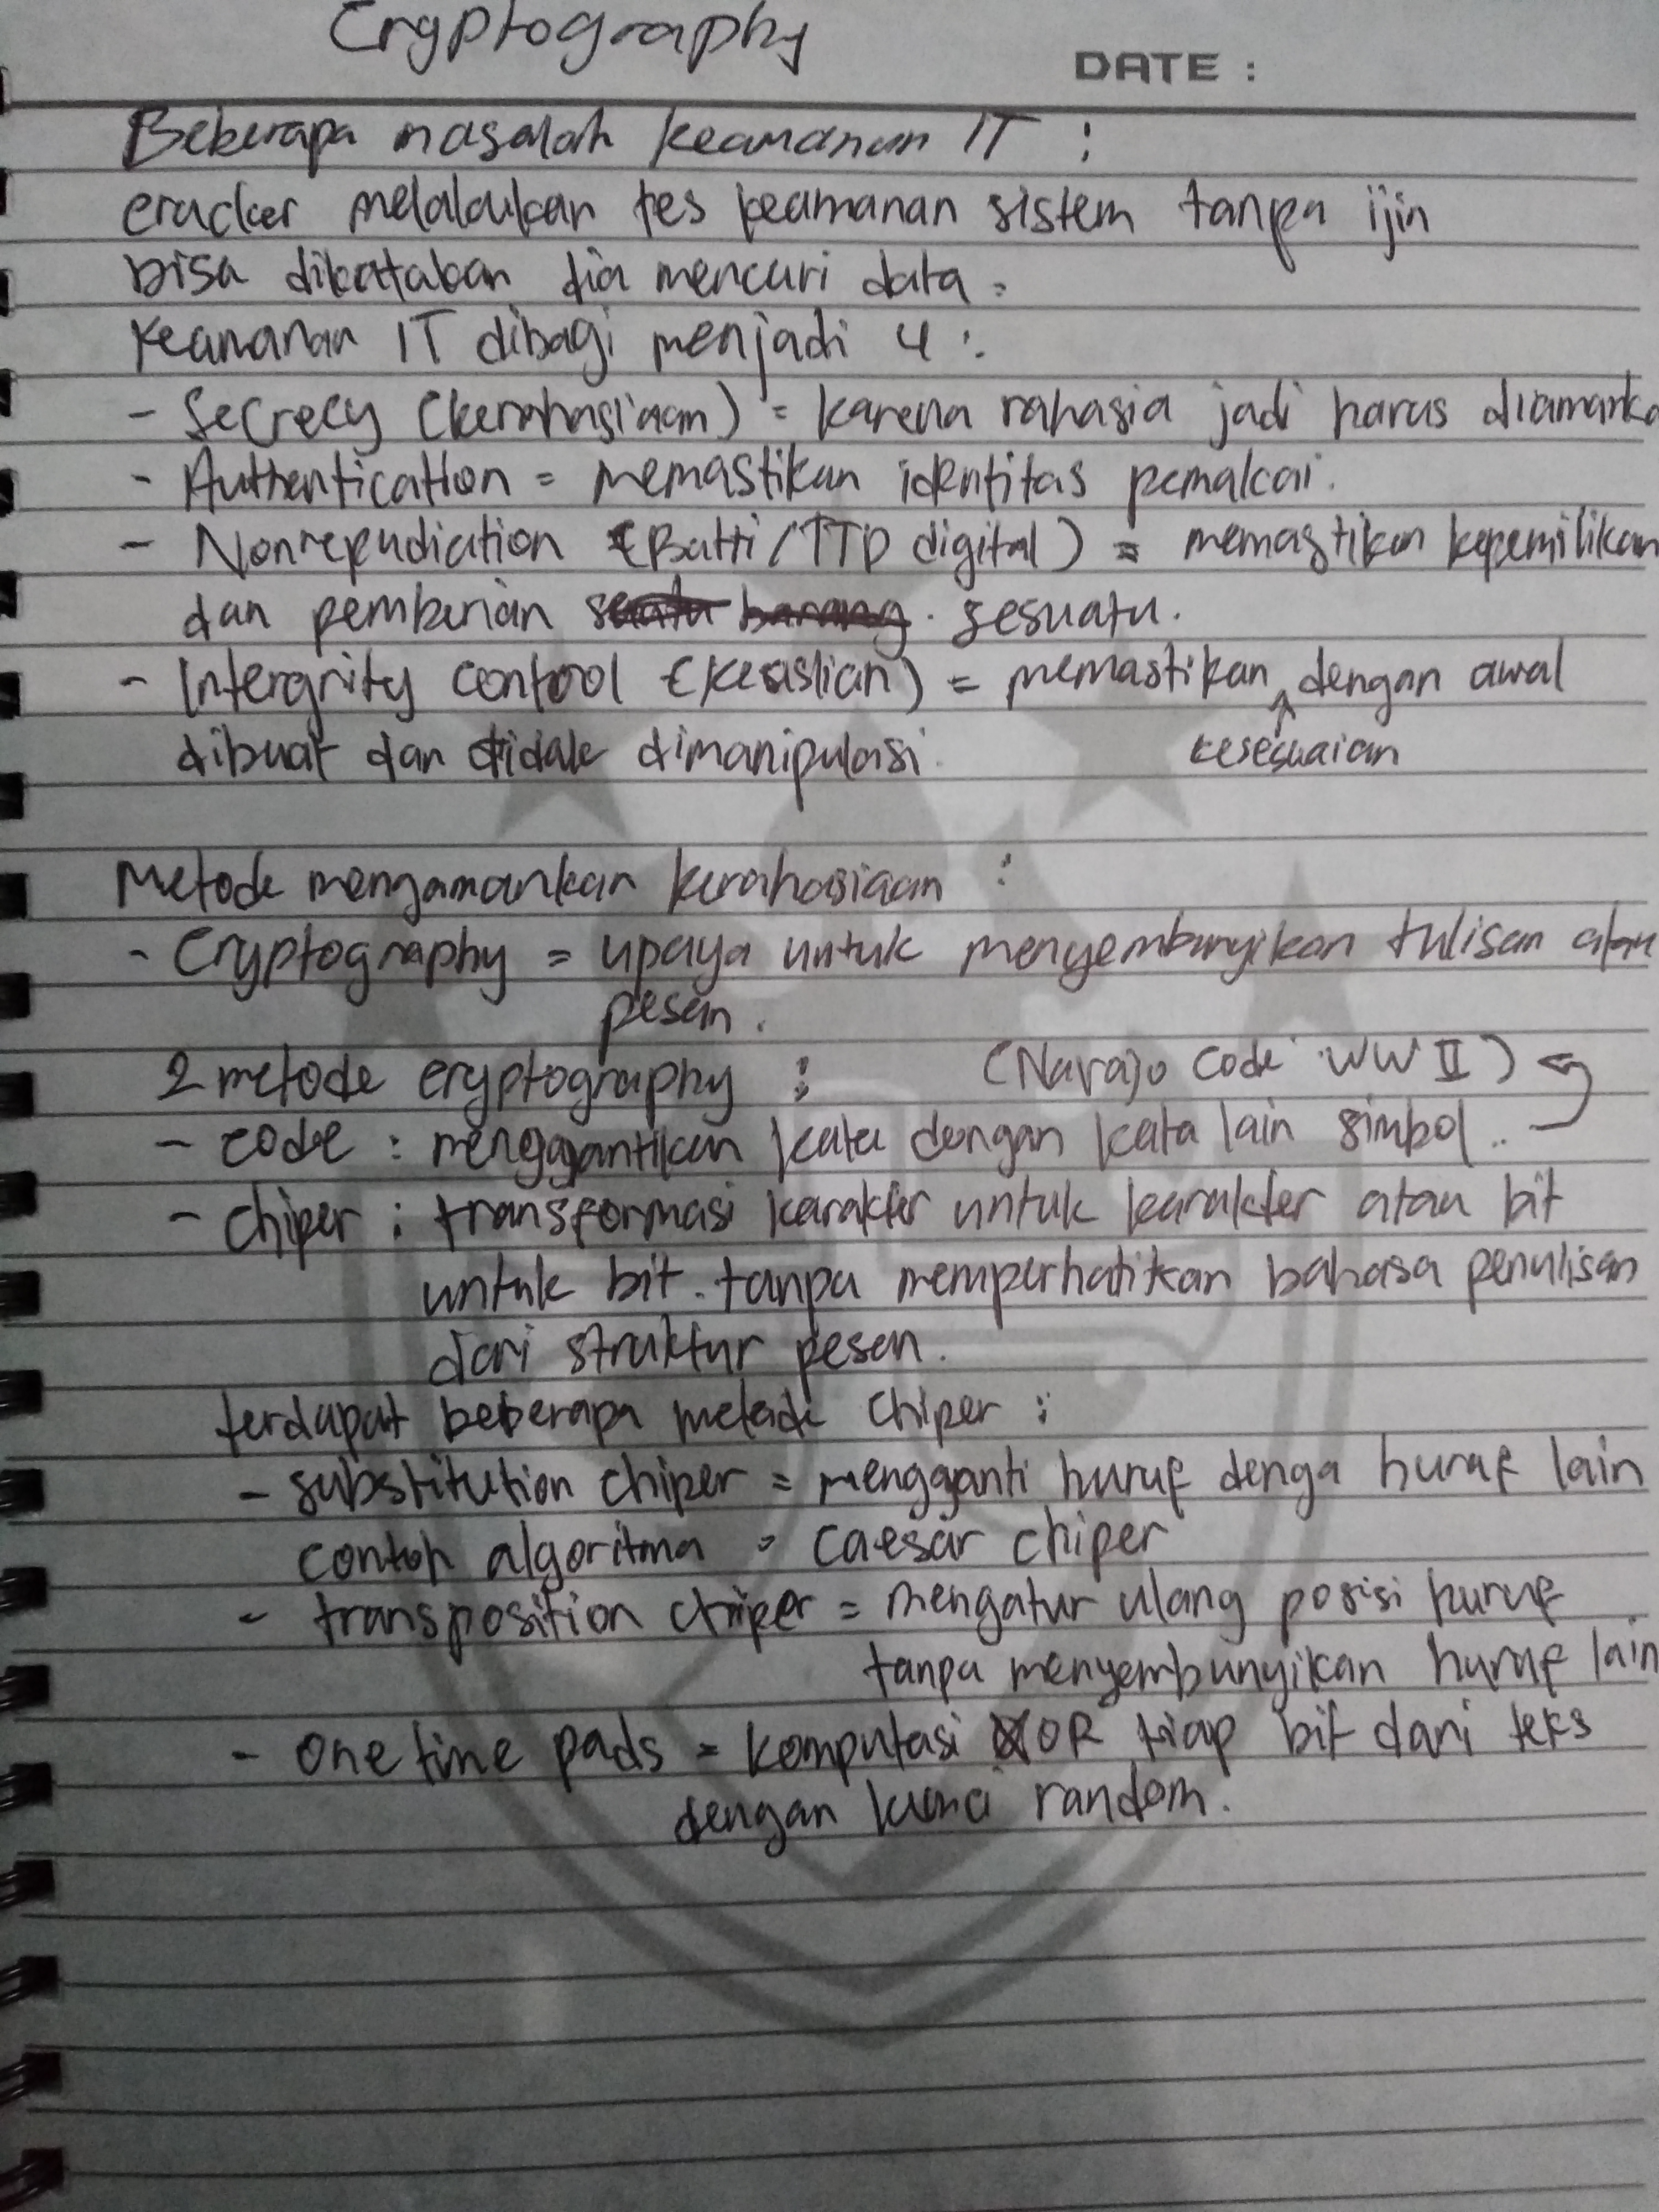 Cryptography
DATE :
Beberapa masalah keamanan IT :
cracker melakukan tes keamanan sistem tanpa ijin
bisa dikatakan dia mencuri data.
Keamanan IT dibagi menjadi 4 :
- Secrecy (kerahasiaan) = karena rahasia jadi harus diamanka
- Authentication = memastikan identitas pemakai.
- Nonrepudiation (Bukti/TTD digital) = memastikan kepemilikan
dan pemberian sesuatu.
- Intergrity control (keaslian) = memastikan dengan awal
kesesuaian
dibuat dan tidak dimanipulasi.
Metode mengamankan kerahasiaan :
- Cryptography = upaya untuk menyembunyikan tulisan atau
pesan.
2 metode cryptography : (Navajo Code WW II)
- code : menggantikan kata dengan kata lain simbol..
- chiper : transformasi karakter untuk karakter atau bit
untuk bit. tanpa memperhatikan bahasa penulisan
dari struktur pesan.
terdapat beberapa metode chiper :
- substitution chiper = mengganti huruf denga huruf lain
contoh algoritma = caesar chiper
- transposition chiper = mengatur ulang posisi huruf
tanpa menyembunyikan huruf lain
- one time pads = komputasi XOR tiap bit dari teks
dengan kunci random.